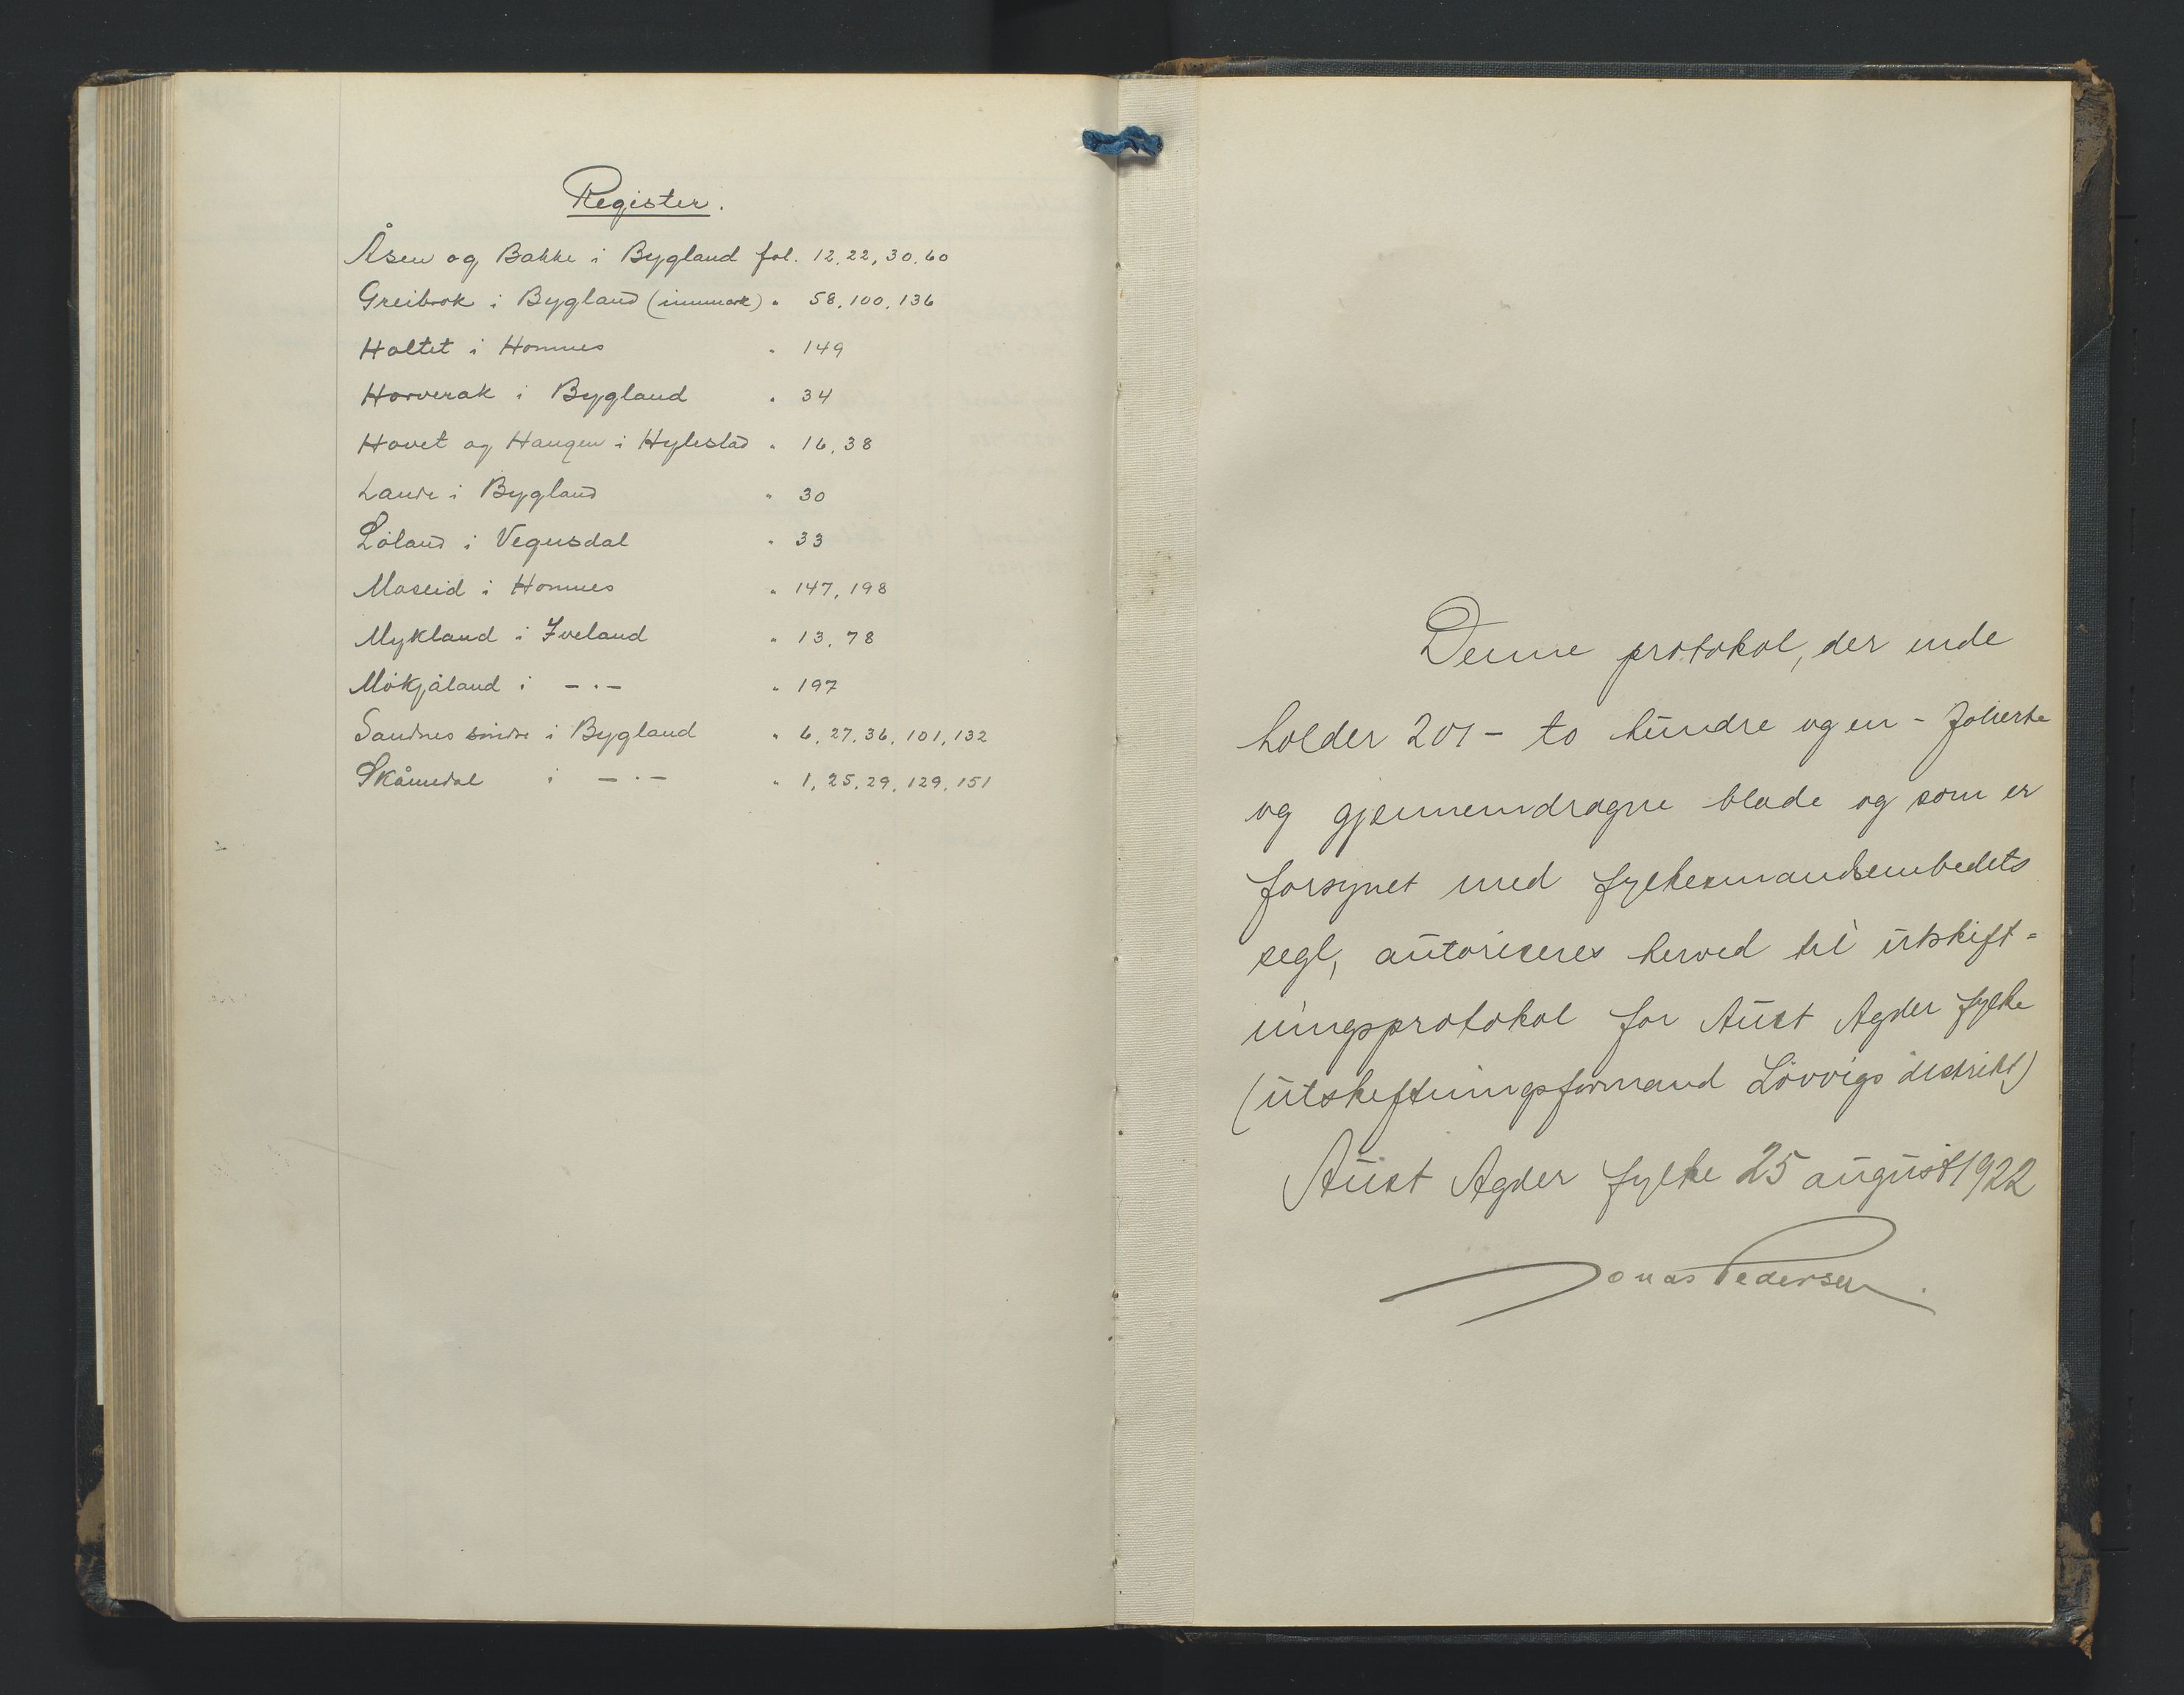 Register.
Åsen og Bakke i Bygland fol. 12, 22, 30, 60
Greibrok i Bygland (innmark) " 58, 100, 136
Holtet i Hornnes " 149
Horverak i Bygland " 34
Hovet og Haugen i Hylestad " 16, 38
Lande i Bygland " 30
Löland i Vegusdal " 33
Moseid i Hornnes " 147, 198
Mykland i Iveland " 13, 78
Mökjåland i - · - " 197
Sandnes søndre i Bygland " 6, 27, 36, 101, 132
Skåmedal i - · - " 1, 25, 29, 129, 151
Denne protokol, der inde
holder 201 - to hundre og en - folierte
og gjennemdragne blade og som er
forsynet med fylkesmandsembedets
segl, autoriseres herved til utskift=
ningsprotokol for Aust Agder fylke
(utskiftningsformand Lövvigs distrikt)
Aust Agder fylke 25 august 1922
Jonas Pedersen.